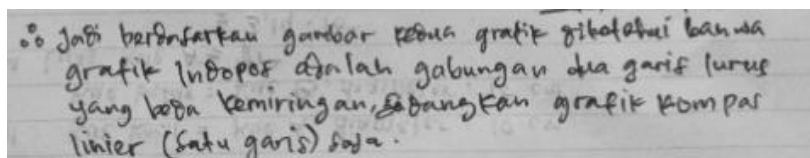 ∴ Jadi berdasarkan gambar kedua grafik diketahui bahwa
grafik Indopos adalah gabungan dua garis lurus
yang beda kemiringan, sedangkan grafik kompas
linier (satu garis) saja.